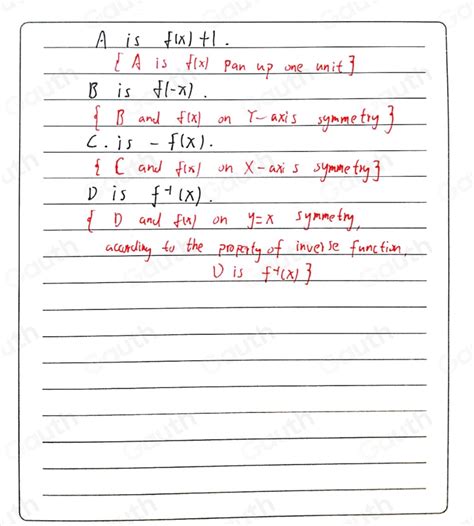 A is f(x)+1.
{ A is f(x) pan up one unit }
B is f(-x).
{ B and f(x) on Y-axis symmetry }
C. is - f(x).
{ C and f(x) on X-axis symmetry }
D is f⁻¹(x).
{ D and f(x) on y=x symmetry,
according to the property of inverse function,
D is f⁻¹(x) }
Gauth